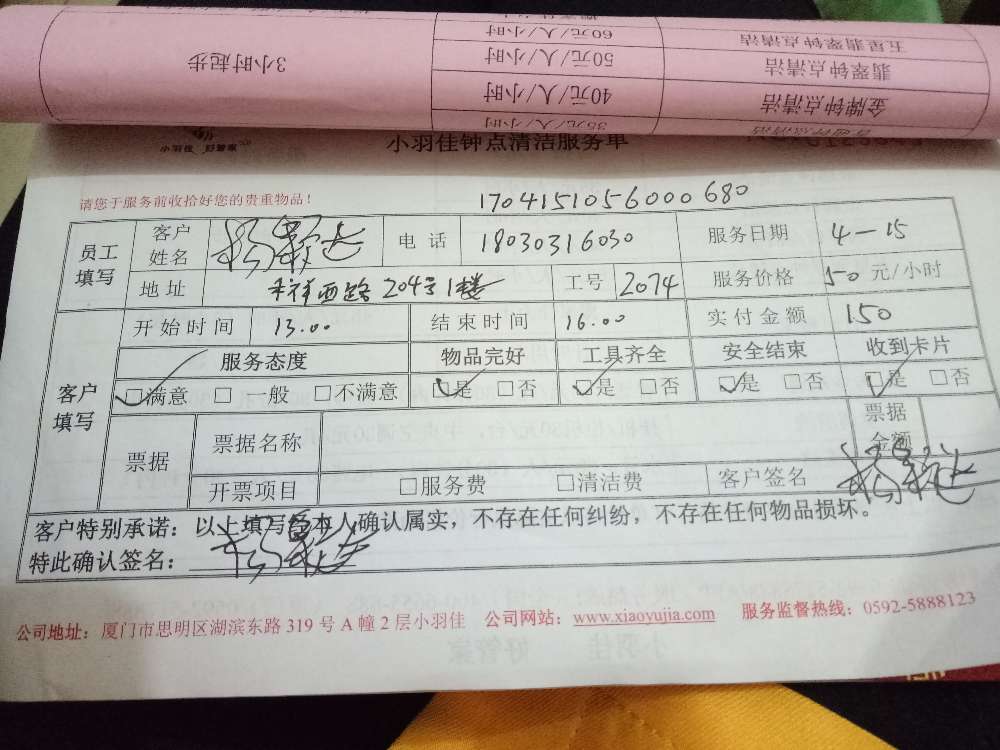 五星翡翠钟点清洁 60元/人/小时
翡翠钟点清洁 50元/人/小时 3小时起步
金牌钟点清洁 40元/人/小时
35元/人/小时
小羽佳 好管家
小羽佳钟点清洁服务单
请您于服务前收拾好您的贵重物品！ 1704151056000680
员工填写 客户姓名 电话 18030316030 服务日期 4-15
地址 祥西路204号1楼 工号 2074 服务价格 50元/小时
客户填写 开始时间 13.00 结束时间 16.00 实付金额 150
服务态度 物品完好 工具齐全 安全结束 收到卡片
☑满意 □一般 □不满意 ☑是 □否 ☑是 □否 ☑是 □否 ☑是 □否
票据 票据名称 票据金额
开票项目 □服务费 □清洁费 客户签名
客户特别承诺：以上填写皆本人确认属实，不存在任何纠纷，不存在任何物品损坏。
特此确认签名：
公司地址：厦门市思明区湖滨东路319号A幢2层小羽佳 公司网站：www.xiaoyujia.com 服务监督热线：0592-5888123